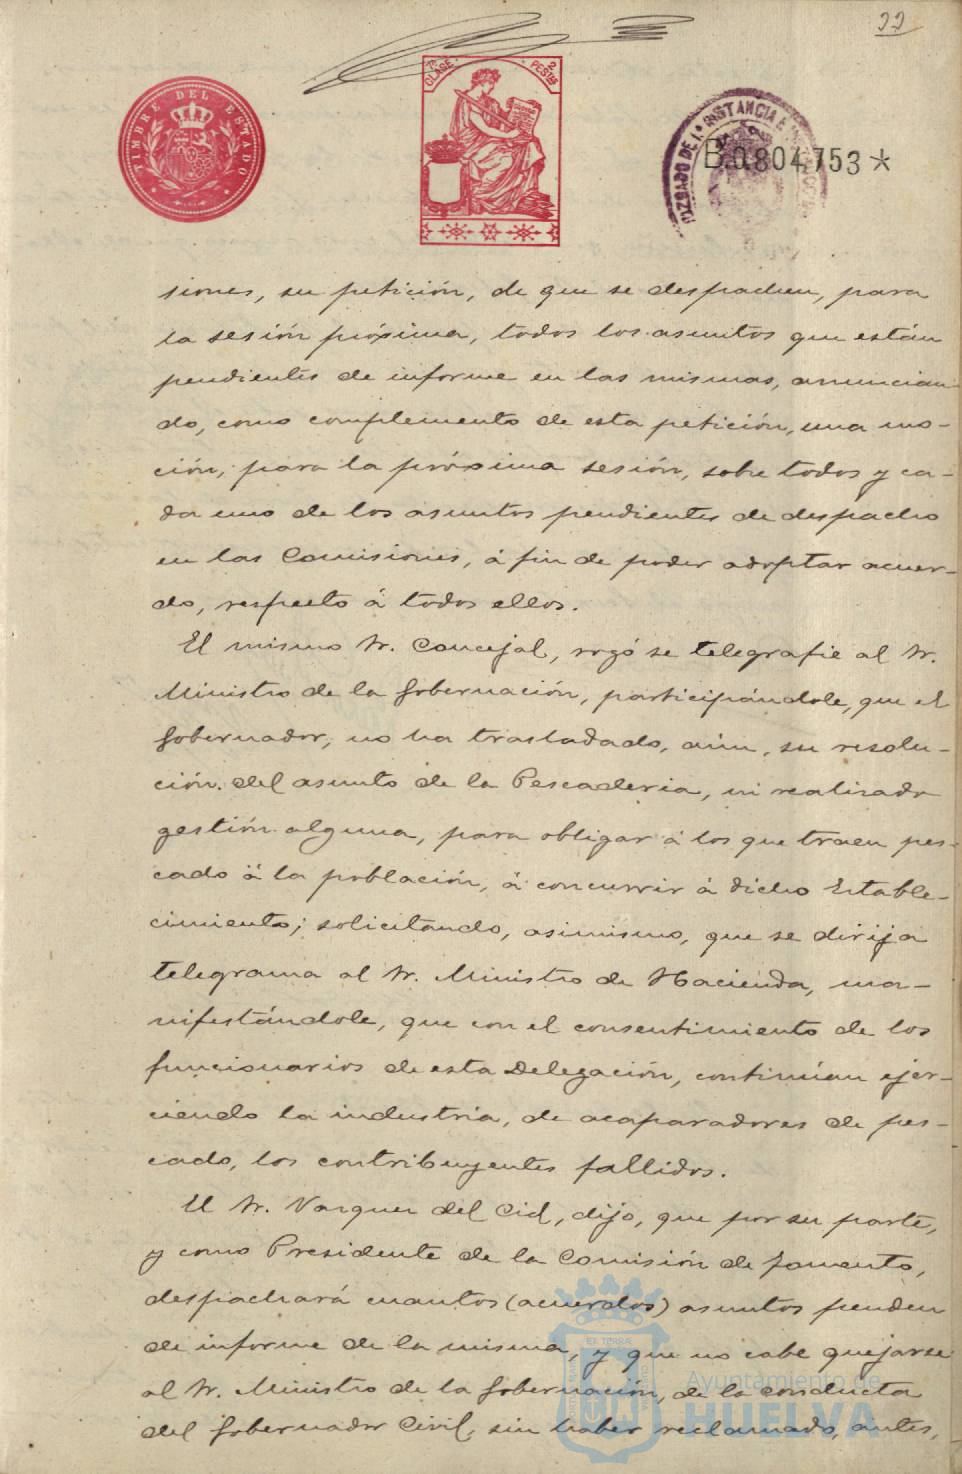 22
TIMBRE DEL ESTADO
7ª CLASE 2 PESTAS
JUZGADO DE 1ª INSTANCIA E
B.0.804.753*
siones, su petición, de que se despachen, para
la sesión próxima, todos los asuntos que están
pendientes de informe en las mismas, anuncian-
do, como complemento de esta petición, una mo-
ción, para la próxima sesión, sobre todos y ca-
da uno de los asuntos pendientes de despacho
en las Comisiones, á fin de poder adoptar acuer-
do, respecto á todos ellos.
El mismo Sr. Concejal, rogó se telegrafie al Sr.
Ministro de la Gobernación, participándole, que el
Gobernador, no ha trasladado, aún, su resolu-
ción del asunto de la Pescaderia, ni realizado
gestión alguna, para obligar á los que traen pes-
cado á la población, á concurrir á dicho Estable-
cimiento; solicitando, asimismo, que se dirija
telegrama al Sr. Ministro de Hacienda, ma-
nifestándole, que con el consentimiento de los
funcionarios de esta Delegación, continúan ejer-
ciendo la industria, de acaparadores de pes-
cado, los contribuyentes fallidos.
El Sr. Vazquez del Cid, dijo, que por su parte,
y como Presidente de la Comisión de Fomento,
despachará cuantos (acuerdos) asuntos penden
de informe de la misma, y que no cabe quejarse
al Sr. Ministro de la Gobernación, de la conducta
del Gobernador Civil, sin haber reclamado, antes,
Ayuntamiento de
HUELVA